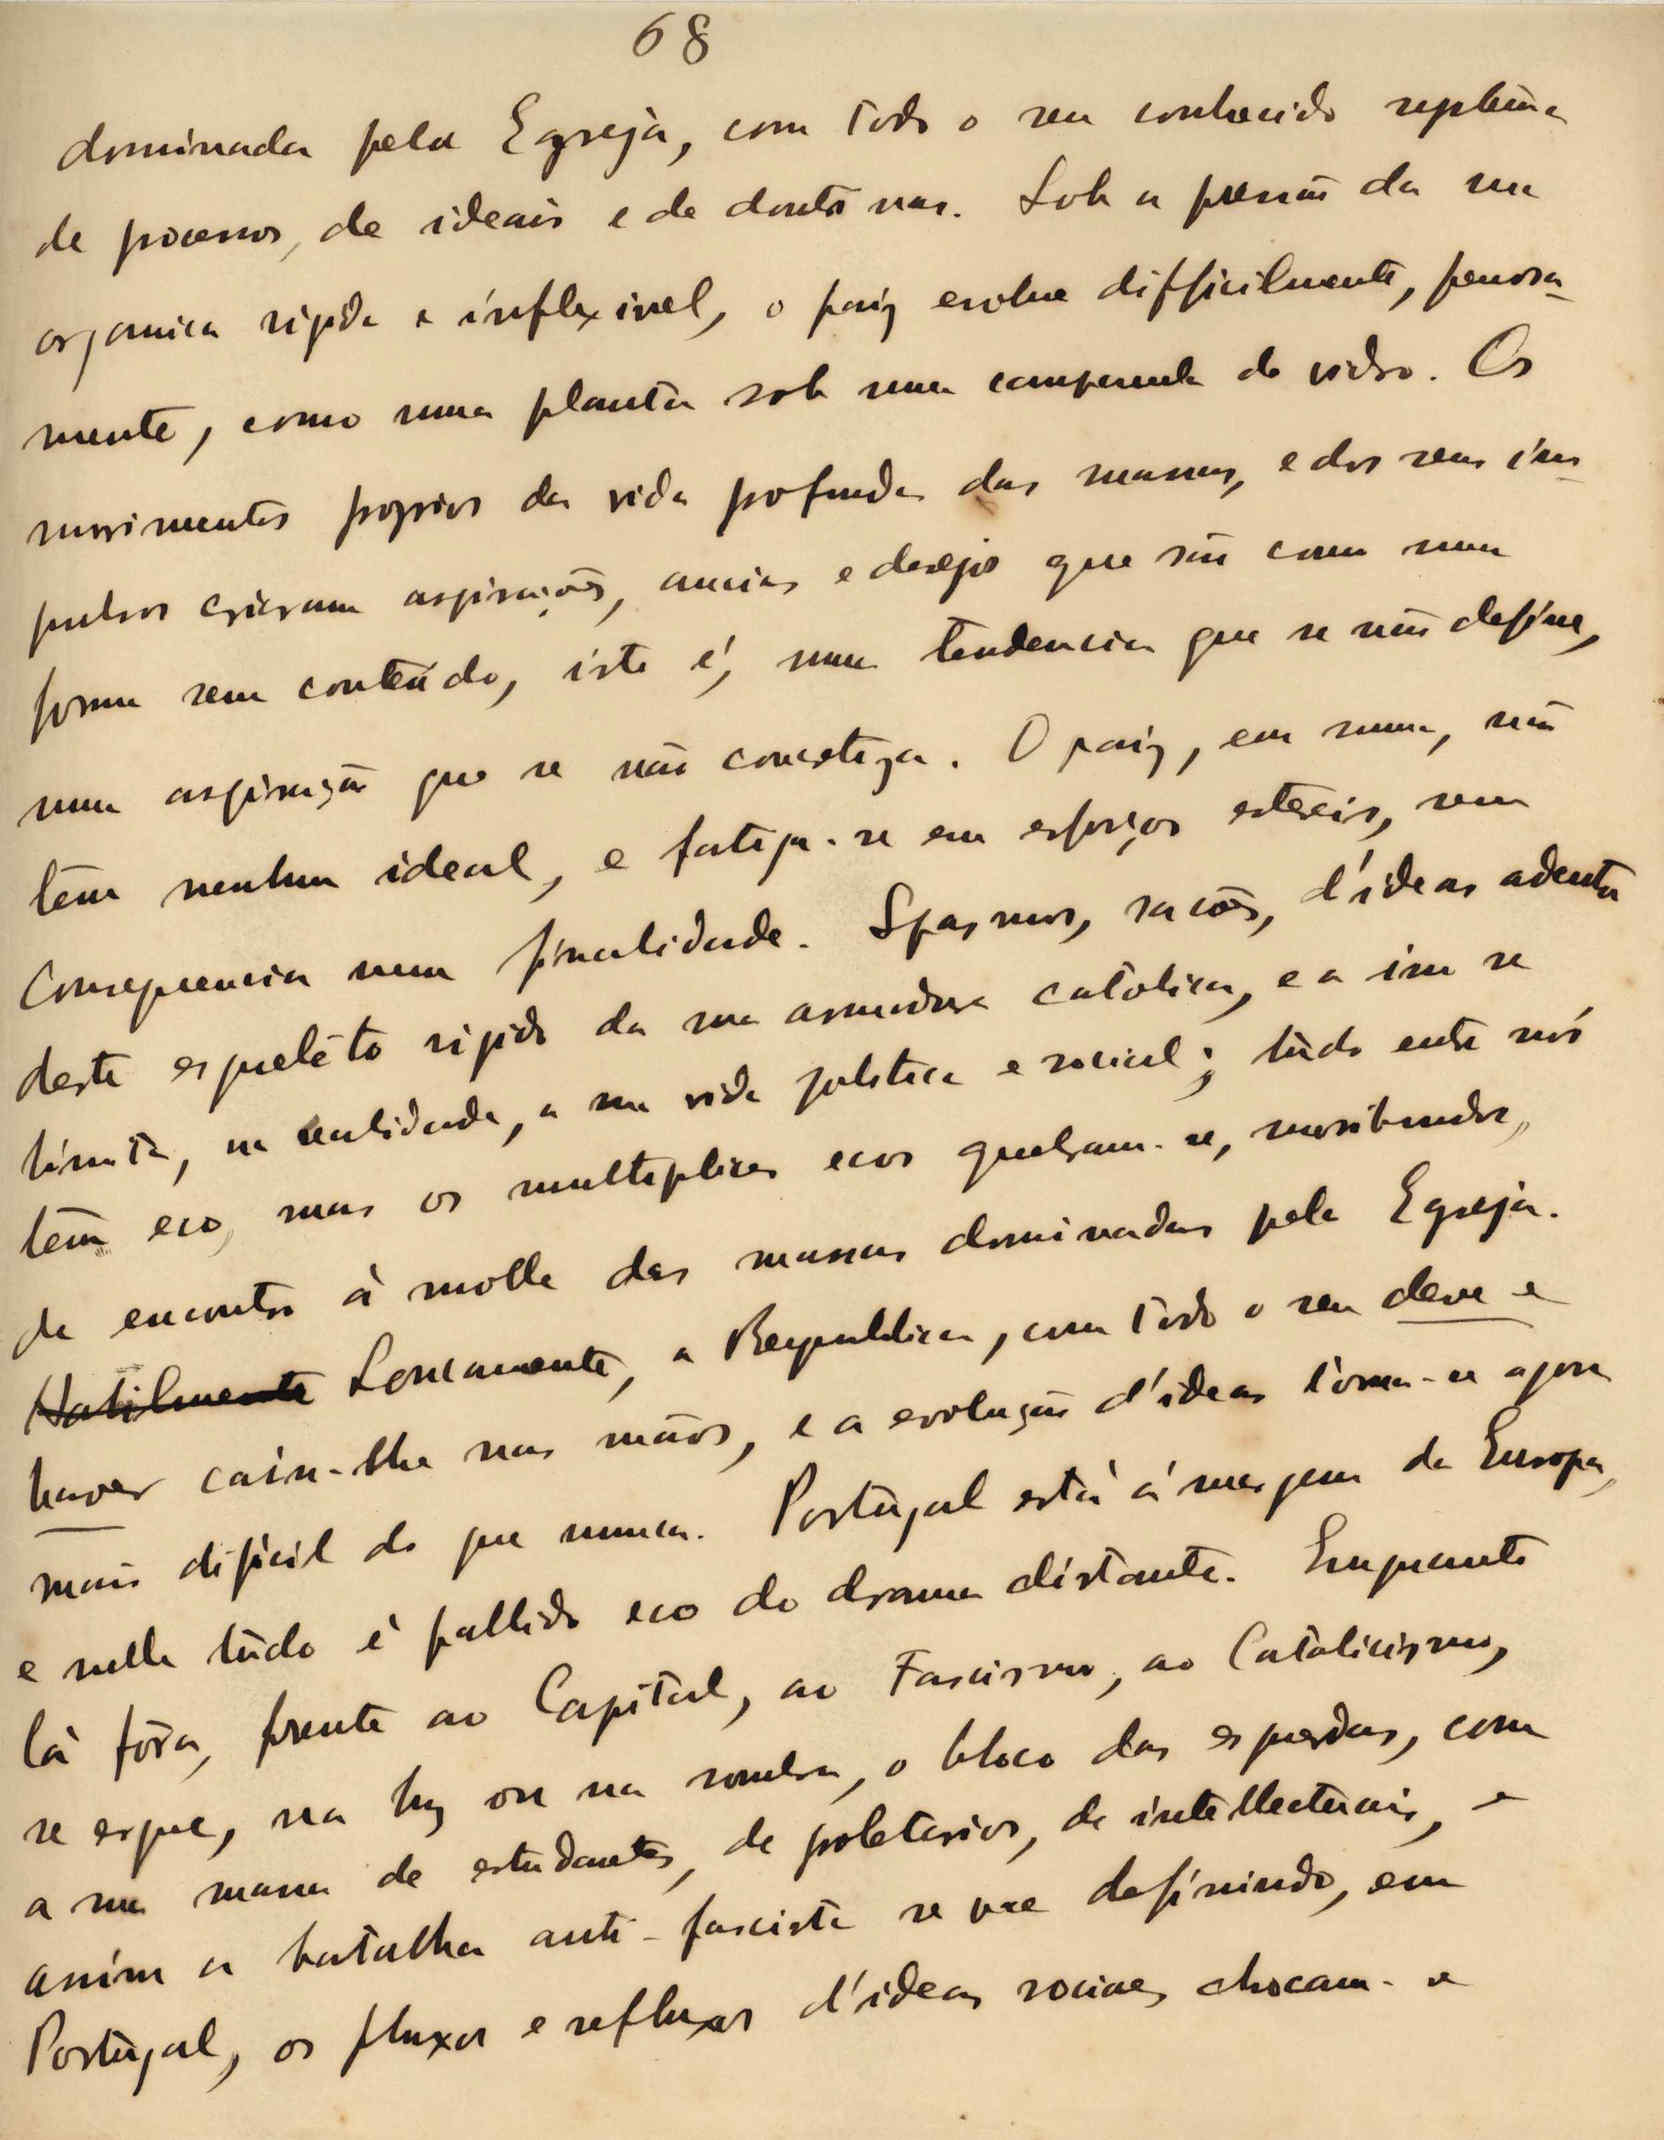 68
dominada pela Egreja, com todo o seu conhecido systema
de processos, de ideais e de doutrinas. Sob a pressão da sua
organica rigida e inflexivel, o paiz evolue difficilmente, penosa-
mente, como uma planta sob uma campanula de vidro. Os
movimentos proprios da vida profunda das massas, e dos seus im-
pulsos crieram aspirações, ancias e desejos que são como uma
forma sem conteúdo, isto é, uma tendencia que se não define,
uma aspiração que se não concretiza. O paiz, em suma, não
tem nenhum ideal, e fatiga-se em esforços estereis, sem
consequencia nem finalidade. Spasmos, sacões, d'ideas adentro
deste esqueléto rigido da sua armadura catolica, e a isso se
limita, na realidade, a sua vida politica e social; túdo entre nós
tem eco, mas os multiplices ecos quebram-se, moribundos,
de encontro á molle das massas dominadas pela Egreja.
Hatilmente Loucamente, a Republica, com todo o seu deve e
haver caiu-lhe nas mãos, e a evolução d'ideas torna-se agora
mais dificil do que nunca. Portugal está á margem da Europa,
e nelle túdo é pallido eco do drama distante. Emquanto
lá fóra, frente ao Capital, ao Fascismo, ao Catolicismo,
se ergue, na luz ou na sombra, o bloco das esquerdas, com
a sua massa de estudantes, de proletarios, de intellectuais, e
assim a batalha anti-fascista se vae definindo, em
Portugal, os fluxos e refluxos d'ideas sociaes chocam-se